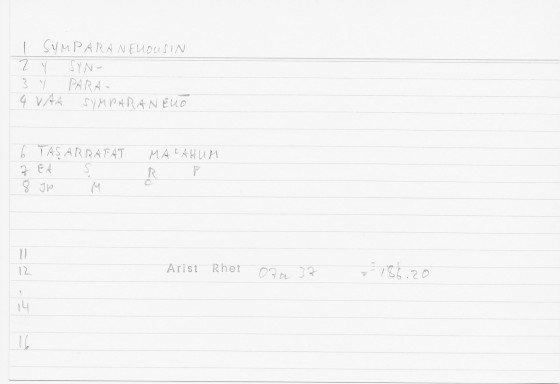 1 SYMPARANEUOUSIN
2 Y SYN-
3 Y PARA-
4 VAA SYMPARANEUŌ
6 TAṢARRAFAT MAᶜAHUM
7 EA Ṣ R F
8 JP M C
11
12 Arist Rhet 07a 37 = 186.20
14
16